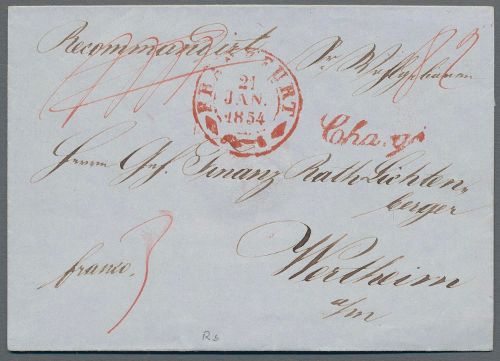 Recommandirt. Sr. Wohlgeboren
FRANKFURT
21
JAN.
1854
Chargé
Herrn Geh. Finanz Rath Lichten-
berger
Wertheim
a/m
franco.